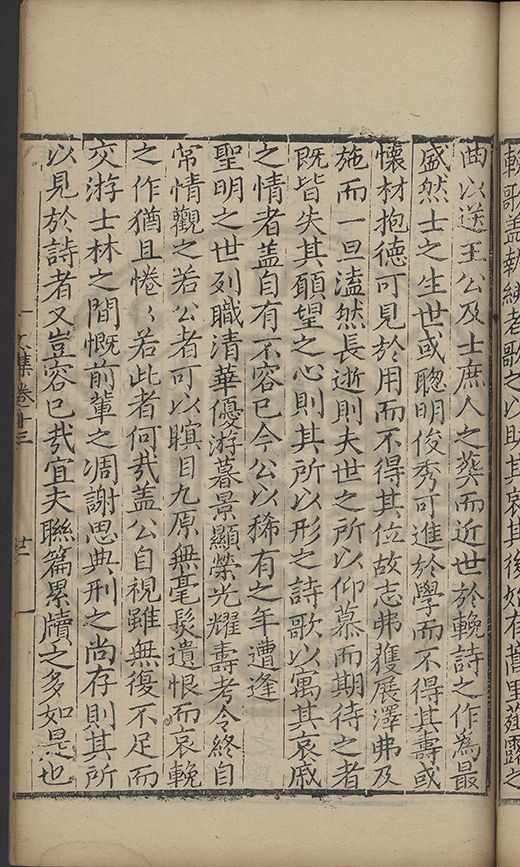 輓歌盖執紼者歌之以助其哀其後始有蒿里薤露之
曲以送王公及士庶人之葬而近世於輓詩之作為最
盛然士之生世或聰明俊秀可進於學而不得其壽或
懷材抱德可見於用而不得其位故志弗獲展澤弗及
施而一旦溘然長逝則夫世之所以仰慕而期待之者
既皆失其顧望之心則其所以形之詩歌以寓其哀戚
之情者盖自有不容已今公以稀有之年遭逢
聖明之世列職清華優游暮景顯榮光耀壽考令終自
常情觀之若公者可以瞑目九原無毫髮遺恨而哀輓
之作猶且惓〻若此者何㢤盖公自視雖無復不足而
交游士林之間慨前輩之凋謝思典刑之尚存則其所
以見於詩者又豈容已㢤宜夫聯篇累牘之多如是也
文集卷十三
廿一